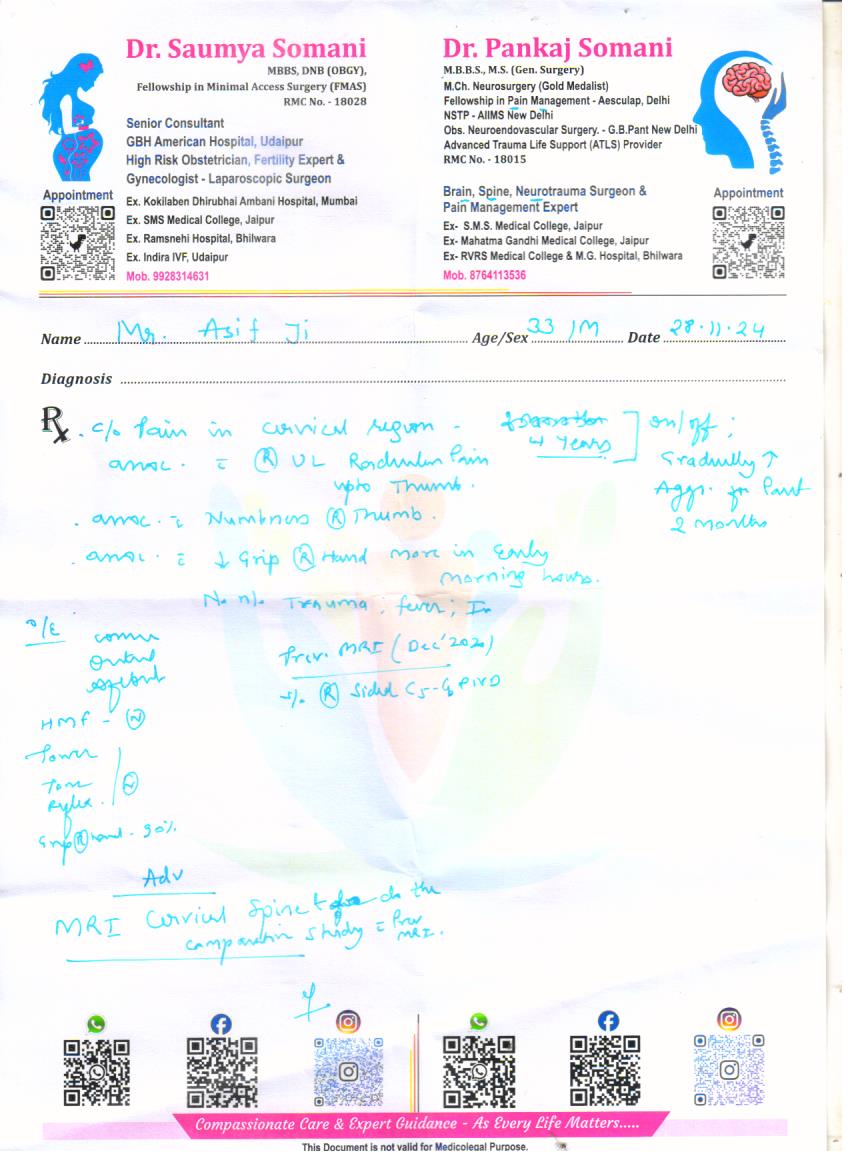 Dr. Saumya Somani
MBBS, DNB (OBGY),
Fellowship in Minimal Access Surgery (FMAS)
RMC No. - 18028
Senior Consultant
GBH American Hospital, Udaipur
High Risk Obstetrician, Fertility Expert &
Gynecologist - Laparoscopic Surgeon
Appointment
Ex. Kokilaben Dhirubhai Ambani Hospital, Mumbai
Ex. SMS Medical College, Jaipur
Ex. Ramsnehi Hospital, Bhilwara
Ex. Indira IVF, Udaipur
Mob. 9928314631
Dr. Pankaj Somani
M.B.B.S., M.S. (Gen. Surgery)
M.Ch. Neurosurgery (Gold Medalist)
Fellowship in Pain Management - Aesculap, Delhi
NSTP - AIIMS New Delhi
Obs. Neuroendovascular Surgery. - G.B.Pant New Delhi
Advanced Trauma Life Support (ATLS) Provider
RMC No. - 18015
Brain, Spine, Neurotrauma Surgeon &
Pain Management Expert
Appointment
Ex- S.M.S. Medical College, Jaipur
Ex- Mahatma Gandhi Medical College, Jaipur
Ex- RVRS Medical College & M.G. Hospital, Bhilwara
Mob. 8764113536
Name Mr. Asif Ji Age/Sex 33 /M Date 28.11.24
Diagnosis
Rx
. c/o Pain in cervical region - 4 years on/off;
assoc. c̄ (R) UL Radicular Pain
upto Thumb.
Gradually ↑
Aggr. for Past
2 months
. assoc. c̄ Numbness (R) Thumb.
. assoc. c̄ ↓ Grip (R) Hand more in early
morning hours.
No h/o Trauma; fever;
O/E
Prev. MRI (Dec' 2020)
s/o (R) sided C5-C6 PIVD
HMF - (N)
Power
Tone (N)
Reflex.
Grip (R) hand - 90%
Adv
MRI Cervical Spine do the
comparative study c̄ Prev
MRI.
Compassionate Care & Expert Guidance - As Every Life Matters.....
This Document is not valid for Medicolegal Purpose.